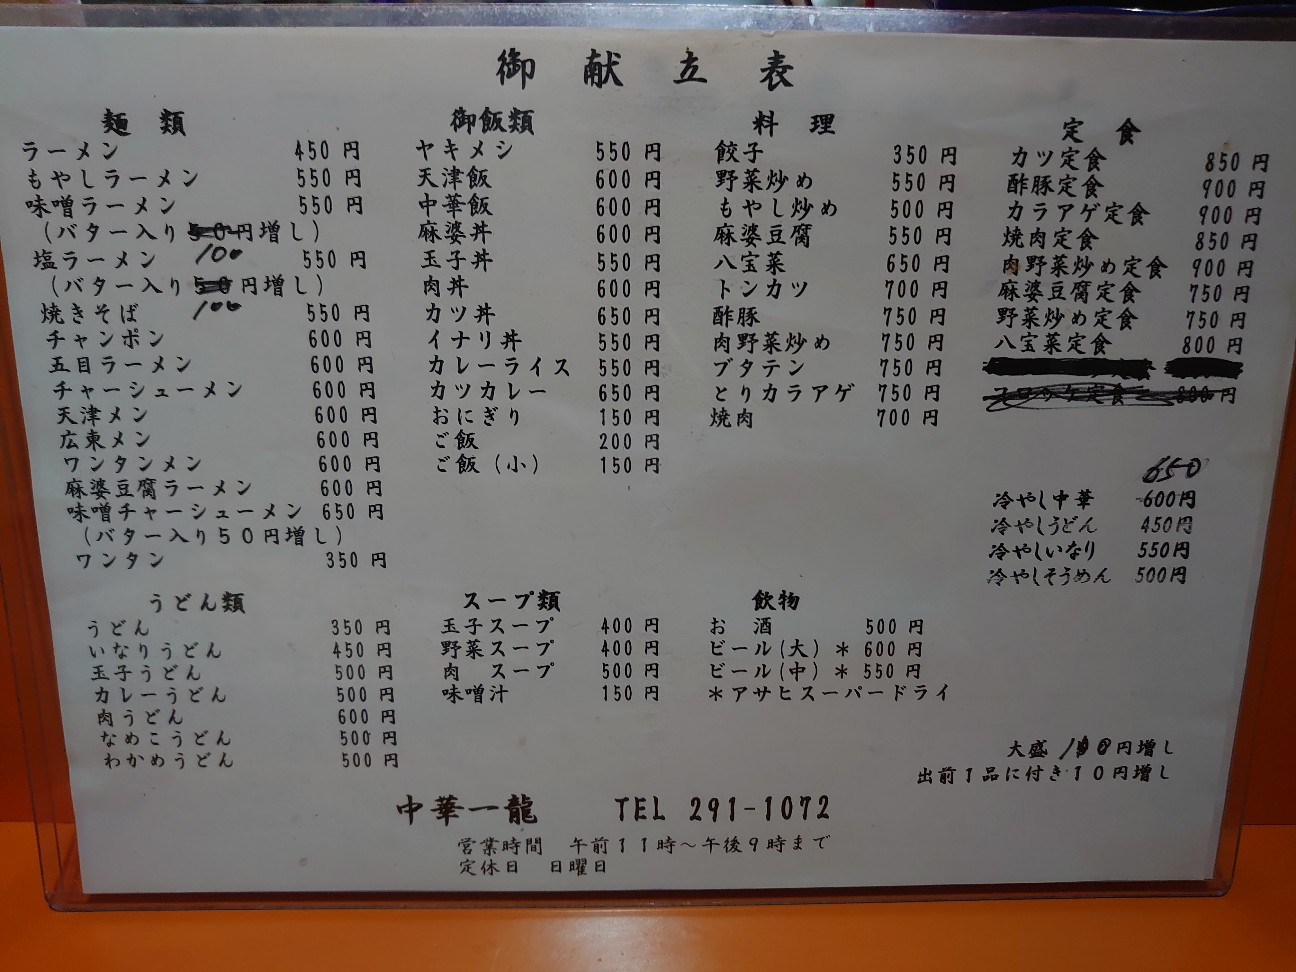 御献立表
麺類
ラーメン 450円
もやしラーメン 550円
味噌ラーメン 550円
(バター入り50円増し)
100
塩ラーメン 550円
(バター入り50円増し)
100
焼きそば 550円
チャンポン 600円
五目ラーメン 600円
チャーシューメン 600円
天津メン 600円
広東メン 600円
ワンタンメン 600円
麻婆豆腐ラーメン 600円
味噌チャーシューメン 650円
(バター入り50円増し)
ワンタン 350円
御飯類
ヤキメシ 550円
天津飯 600円
中華飯 600円
麻婆丼 600円
玉子丼 550円
肉丼 600円
カツ丼 650円
イナリ丼 550円
カレーライス 550円
カツカレー 650円
おにぎり 150円
ご飯 200円
ご飯(小) 150円
料理
餃子 350円
野菜炒め 550円
もやし炒め 500円
麻婆豆腐 550円
八宝菜 650円
トンカツ 700円
酢豚 750円
肉野菜炒め 750円
ブタテン 750円
とりカラアゲ 750円
焼肉 700円
定食
カツ定食 850円
酢豚定食 900円
カラアゲ定食 900円
焼肉定食 850円
肉野菜炒め定食 900円
麻婆豆腐定食 750円
野菜炒め定食 750円
八宝菜定食 800円
コロッケ定食 800円
650
冷やし中華 600円
冷やしうどん 450円
冷やしいなり 550円
冷やしそうめん 500円
うどん類
うどん 350円
いなりうどん 450円
玉子うどん 500円
カレーうどん 500円
肉うどん 600円
なめこうどん 500円
わかめうどん 500円
スープ類
玉子スープ 400円
野菜スープ 400円
肉 スープ 500円
味噌汁 150円
飲物
お 酒 500円
ビール(大)＊600円
ビール(中)＊550円
＊アサヒスーパードライ
大盛 100円増し
出前1品に付き10円増し
中華一龍 TEL 291-1072
営業時間 午前11時～午後9時まで
定休日 日曜日